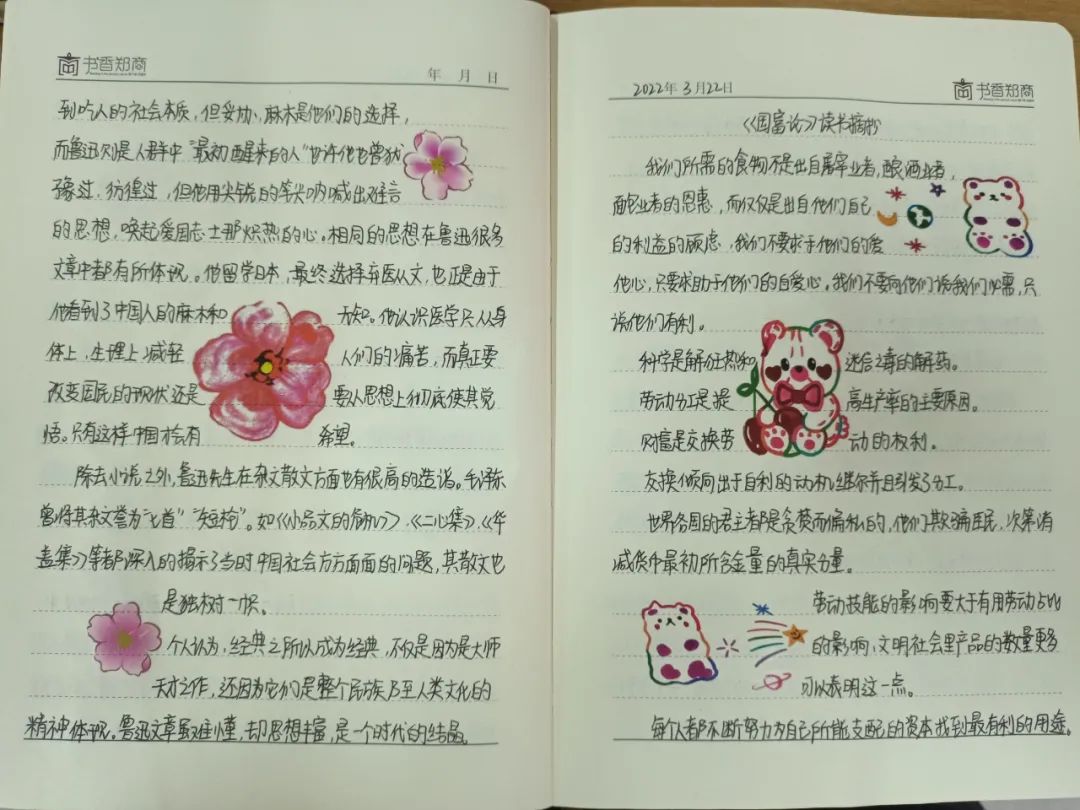 书香郑商
年 月 日
到吃人的社会本质，但妥协，麻木是他们的选择，
而鲁迅则是人群中“最初醒来的人”也许他也曾犹
豫过，彷徨过，但他用尖锐的笔尖呐喊出难言
的思想，唤起爱国志士那炽热的心。相同的思想在鲁迅很多
文章中都有所体现。他留学日本，最终选择弃医从文，也正是由于
他看到了中国人的麻木和 无知。他认识医学只从身
体上，生理上减轻 人们的痛苦，而真正要
改变国民的现状还是 要从思想上彻底使其觉
悟。只有这样中国才会有 希望。
除去小说之外，鲁迅先生在杂文散文方面也有很高的造诣。毛泽东
曾将其杂文誉为“匕首”“短枪”。如《小品文的》，《二心集》，《华
盖集》等都深入的揭示了当时中国社会方方面面的问题，其散文也
是独树一帜。
个人认为，经典之所以成为经典，不仅是因为是大师
天才之作，还因为它们是整个民族乃至人类文化的
精神体现。鲁迅文章虽难懂，却思想丰富，是一个时代的结晶。
2022年3月22日
书香郑商
《国富论》读书摘抄
我们所需的食物不是出自屠宰业者，酿酒业者，
面包业者的恩惠，而仅仅是出自他们自己
的利益的顾虑，我们不要求于他们的爱
他心，只要求助于他们的自爱心。我们不要向他们说我们必需，只
说他们有利。
科学是解狂热和 迷信之毒的解药。
劳动分工是提 高生产率的主要原因。
财富是交换劳 动的权利。
交换倾向出于自利的动机，继尔并且引发了分工。
世界各国的君主都是贪婪而偏私的，他们欺骗臣民，次第消
减货币最初所含金量的真实分量。
劳动技能的影响要大于有用劳动占比
的影响，文明社会里产品的数量更多
可以表明这一点。
每个人都不断努力为自己所能支配的资本找到最有利的用途。